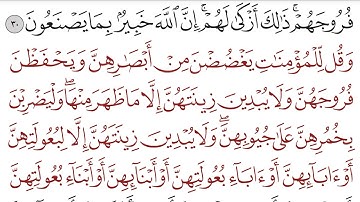 فُرُوجَهُمْ ۚ ذَٰلِكَ أَزْكَىٰ لَهُمْ ۗ إِنَّ ٱللَّهَ خَبِيرٌۢ بِمَا يَصْنَعُونَ ٣٠
وَقُل لِّلْمُؤْمِنَـٰتِ يَغْضُضْنَ مِنْ أَبْصَـٰرِهِنَّ وَيَحْفَظْنَ
فُرُوجَهُنَّ وَلَا يُبْدِينَ زِينَتَهُنَّ إِلَّا مَا ظَهَرَ مِنْهَا ۖ وَلْيَضْرِبْنَ
بِخُمُرِهِنَّ عَلَىٰ جُيُوبِهِنَّ ۖ وَلَا يُبْدِينَ زِينَتَهُنَّ إِلَّا لِبُعُولَتِهِنَّ
أَوْ ءَابَآئِهِنَّ أَوْ ءَابَآءِ بُعُولَتِهِنَّ أَوْ أَبْنَآئِهِنَّ أَوْ أَبْنَآءِ بُعُولَتِهِنَّ